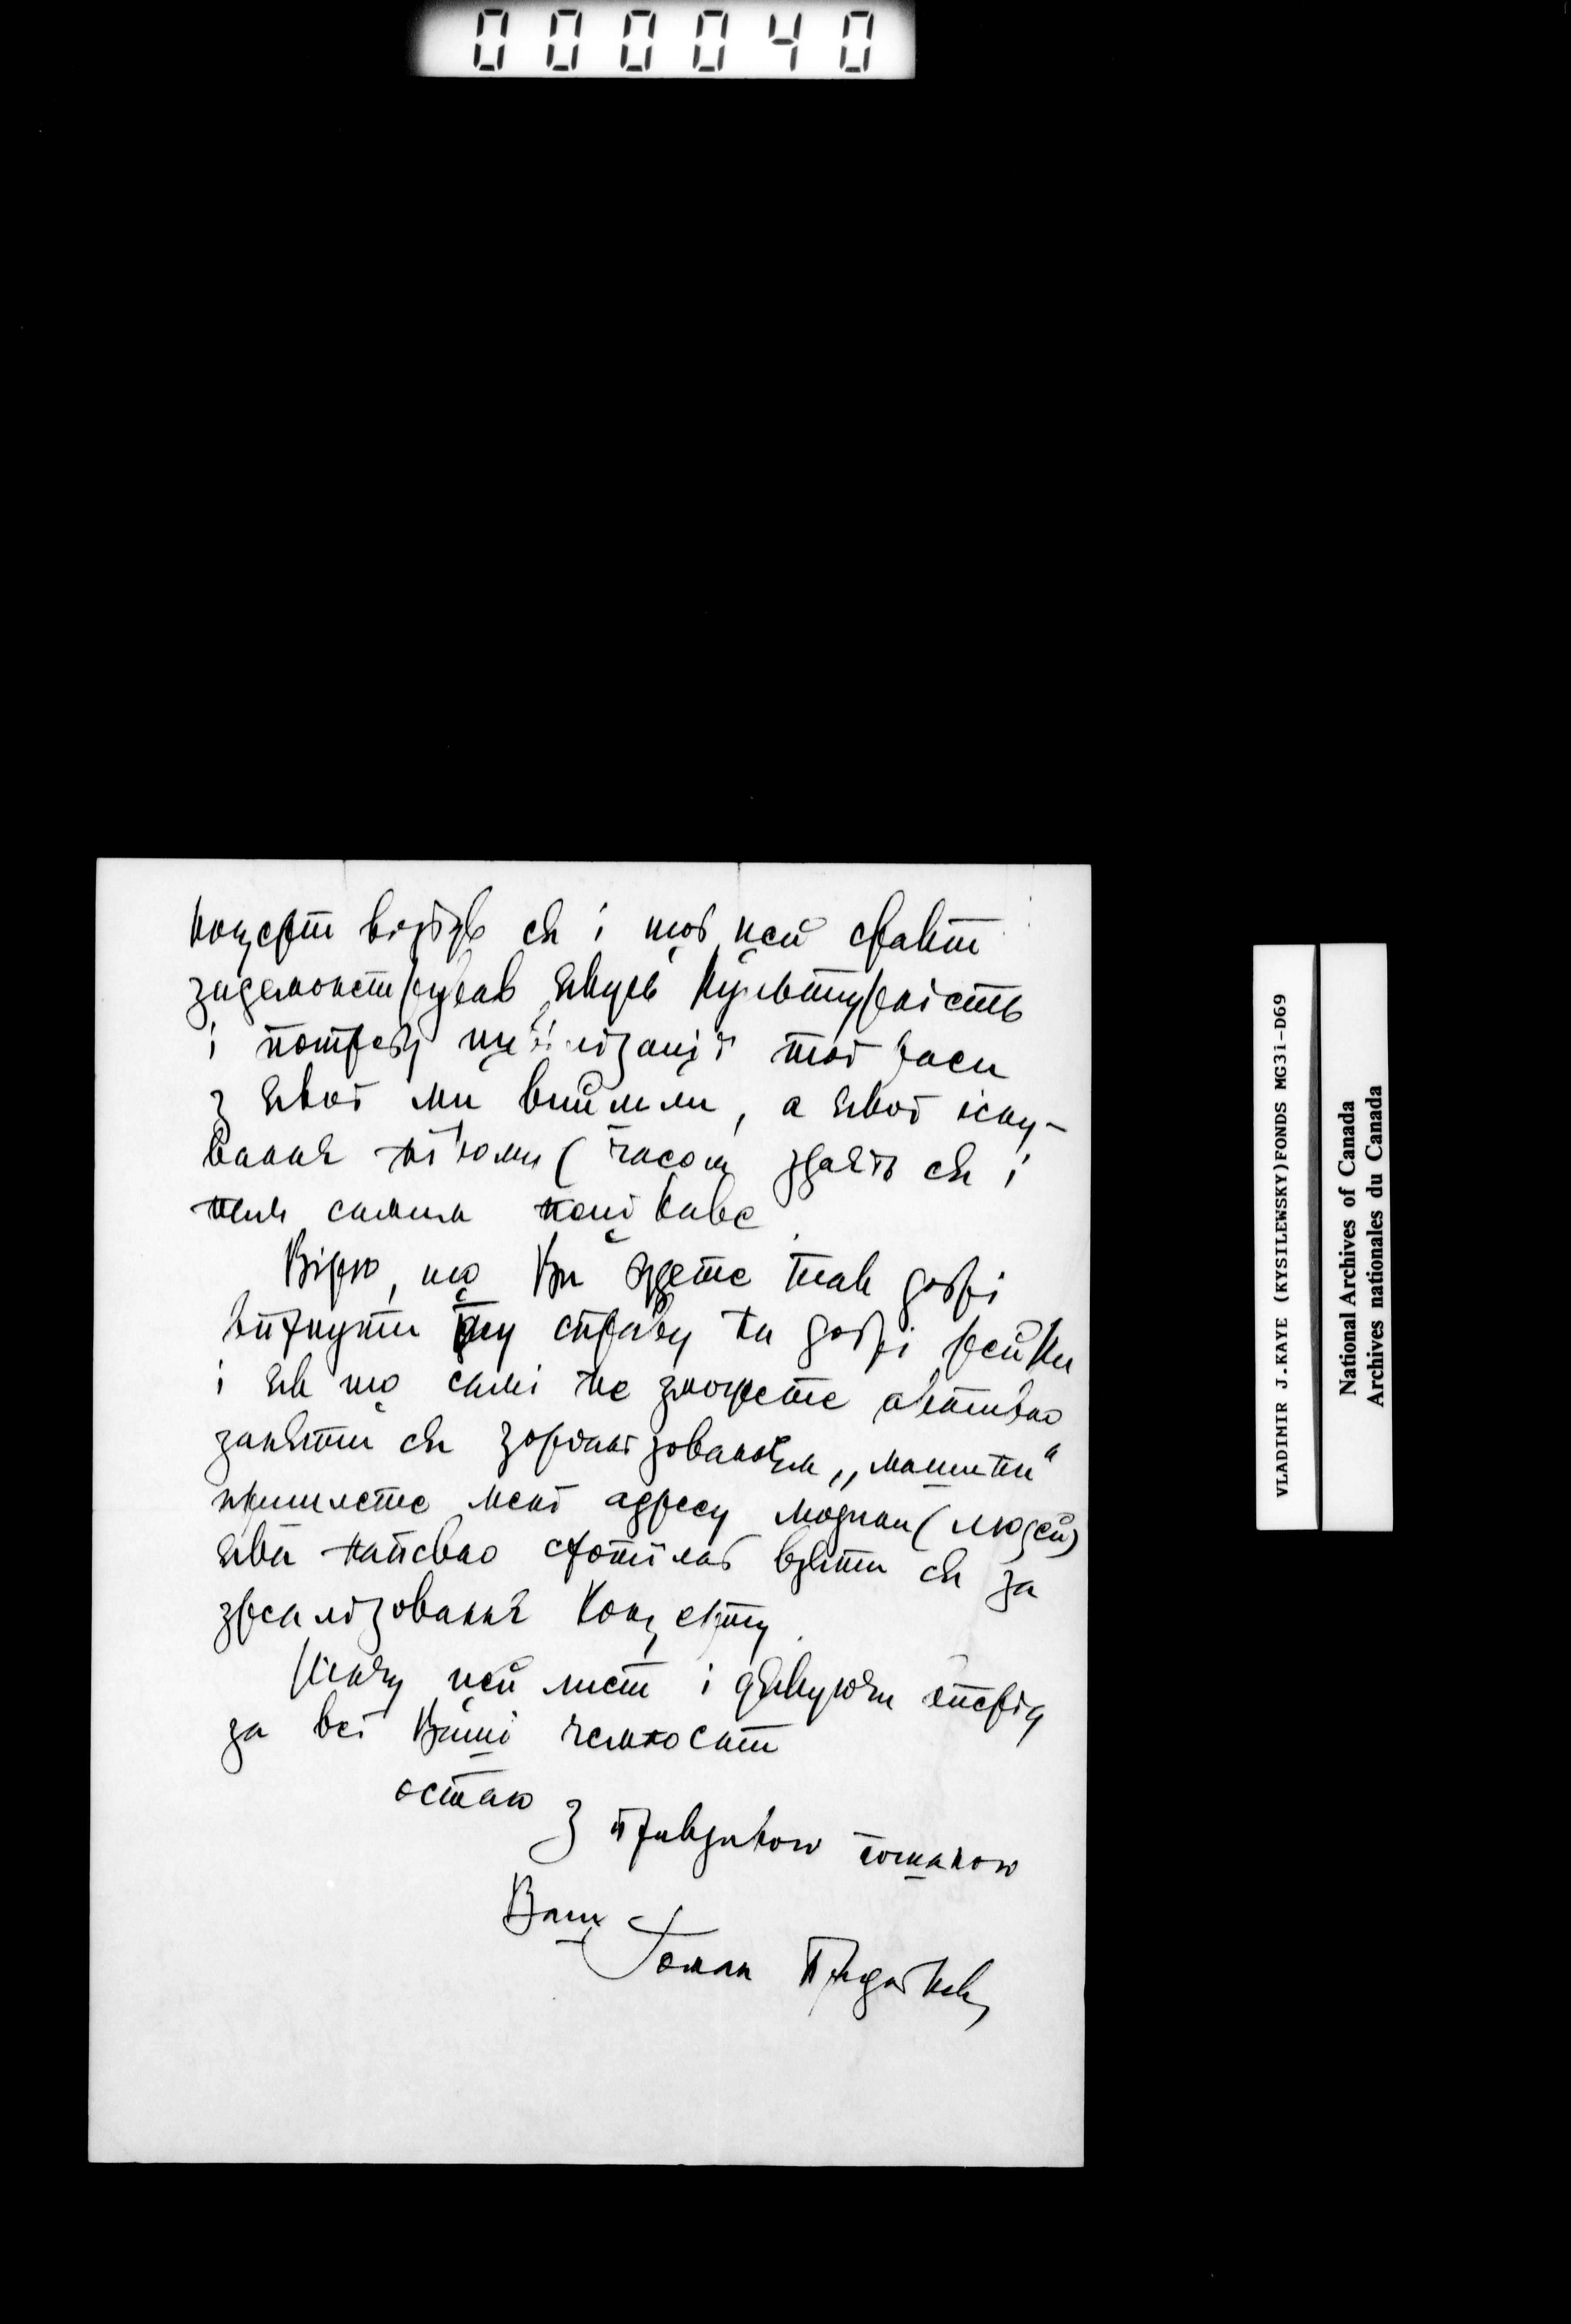 000040
концерт відбув ся і щоб цей факт
задемонстрував якусь культурність
і потребу цивілізації тої раси
з якої ми вийшли, а якої існу-
вання нікому (часом здаєть ся і
нам самим не цікаве.
Вірю, що Ви будете так добрі
випхнути цю справу на добрі рейки
і як що самі не зможете активно
заняти ся зорганізованням „машини“
пришлете мені адресу людини (людей)
яка напевно схотіла б взяти ся за
зреалізовання концерту.
Кінчу цей лист і дякуючи вперід
за всі Ваші чемности
остаю
з правдивою пошаною
Ваш
Роман Придаткевич
VLADIMIR J.KAYE (KYSILEWSKY)FONDS MG31-D69
National Archives of Canada
Archives nationales du Canada